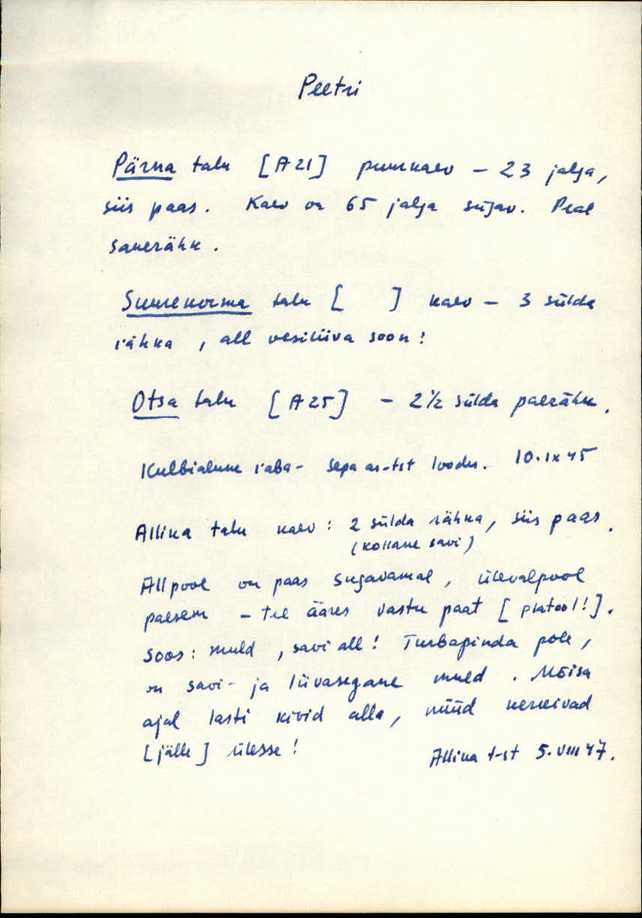 Peetri
Pärna talu [A21] puurkaev – 23 jalga,
siis paas. Kaev on 65 jalga sügav. Peal
saverähk.
Suurekorma talu [ ] kaev – 3 sülda
rähka, all vesiliiva soon!
Otsa talu [A25] – 2½ sülda paerähk.
Kulbialune raba – Sepa as-tst loodu. 10.IX 45
Allika talu kaev: 2 sülda rähka, siis paas.
(kollane savi)
Allpool on paas sügavamal, ülevalpool
paesem – tee ääres vastu paat [platool!].
Soos: muld, savi all! Turbapinda pole,
on savi- ja liivasegane muld. Mõisa
ajal lasti kivid alla, nüüd kerkivad
[jälle] ülesse!
Allika t-st 5.VIII 47.